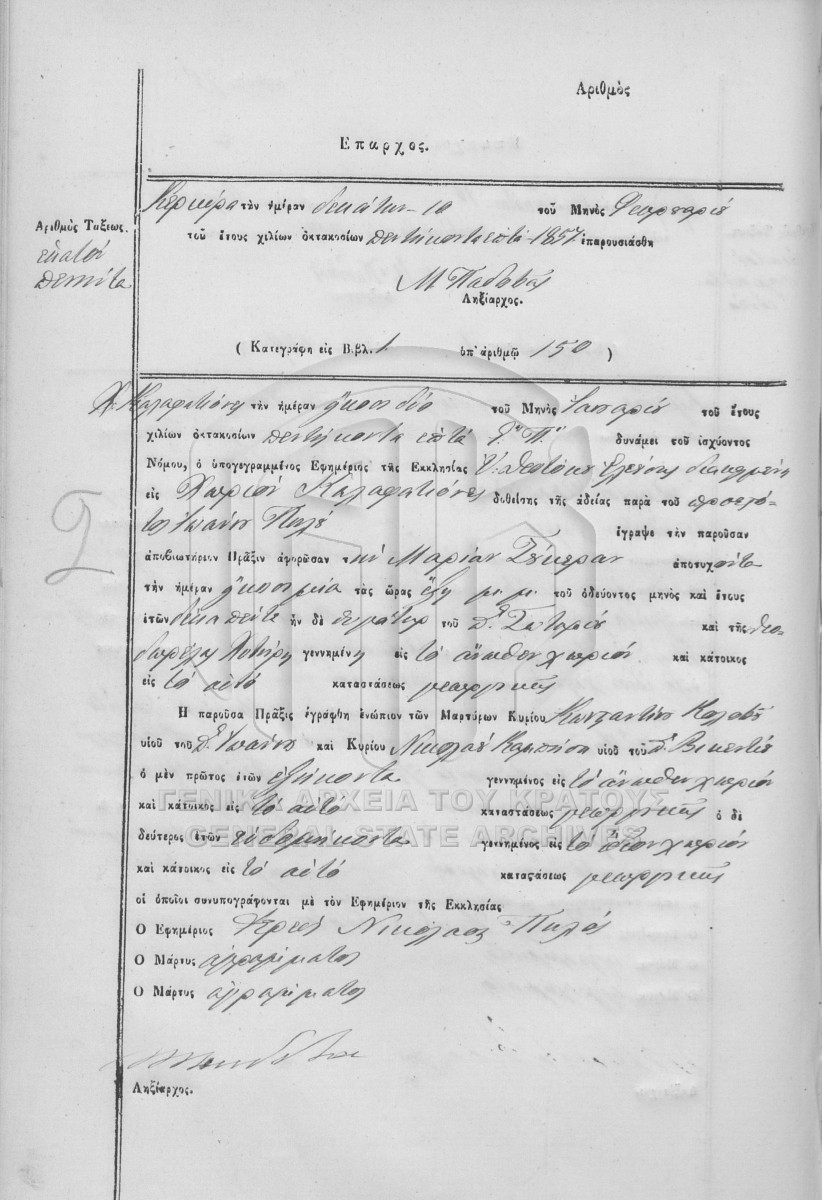 Αριθμὸς
Επαρχος.
Κέρκυρα τὴν ἡμέραν δεκάτην 10 τοῦ Μηνὸς Φεβρουαρίου
Αριθμὸς Ταξεως.
τοῦ ἔτους χιλίων ὀκτακοσίων πεντήκοντα ἑπτὰ 1857 ἐπαρουσιάσθη
ἑκατόν
πενῆντα
Μ Παδοβᾶς
Ληξίαρχος.
( Κατεγράφη εἰς Βιβλ. 1. ὑπ' ἀριθμῷ 150 )
Χ: Καλαφατιόνες τὴν ἡμέραν ἤκοσι δύο τοῦ Μηνὸς Ἰαναρίου τοῦ ἔτους
χιλίων ὀκτακοσίων πεντήκοντα ἑπτὰ Ε.Π. δυνάμει τοῦ ἰσχύοντος
Νόμου, ὁ ὑπογεγραμμένος Εφημέριος τῆς Εκκλησίας Θεοτόκου
εἰς Χωρίον Καλαφατιόνες δοθείσης τῆς ἀδείας παρὰ τοῦ προεστό-
τος Ἰωάνου Πυλὲ ἔγραψε τὴν παροῦσαν
ἀποβιωτήριον Πρᾶξιν ἀφορῶσαν τὴν Μαρίαν ἀποτυχοῦντα
τὴν ἡμέραν ἤκοσι μία τὰς ὥρας ἕξη μ: μ: τοῦ ὁδεύοντος μηνὸς καὶ ἔτους
ἐτῶν δέκα πέντε ἦν δὲ θυγάτηρ τοῦ Σωτηρίου καὶ τῆς Θεο-
δωρέλης γεννημένη εἰς τὸ ἄνωθεν χωρίον καὶ κάτοικος
εἰς τὸ αὐτὸ καταστάσεως γεωργικῆς
Η παροῦσα Πρᾶξις ἐγράφθη ἐνώπιον τῶν Μαρτύρων Κυρίου Κωνσταντίνου
υἱοῦ τοῦ Ἰωάνου καὶ Κυρίου Νικολάου υἱοῦ τοῦ Βικεντίου
ὁ μὲν πρῶτος ἐτῶν ἑξήκοντα γεννημένος εἰς τὸ ἄνωθεν χωρίον
καὶ κάτοικος εἰς τὸ αὐτὸ καταστάσεως γεωργικῆς ὁ δὲ
δεύτερος ἐτῶν εὐδομήκοντα γεννημένος εἰς τὸ ἄνωθεν χωρίον
καὶ κάτοικος εἰς τὸ αὐτὸ καταστάσεως γεωργικῆς
οἱ ὁποῖοι συνυπογράφονται μὲ τὸν Εφημέριον τῆς Εκκλησίας
Ο Εφημέριος Ἱερεὺς Νικόλαος Πυλὲς
Ο Μάρτυς ἀγράμματος
Ο Μάρτυς ἀγράμματος
Ληξίαρχος.
ΓΕΝΙΚΑ ΑΡΧΕΙΑ ΤΟΥ ΚΡΑΤΟΥΣ
GENERAL STATE ARCHIVES